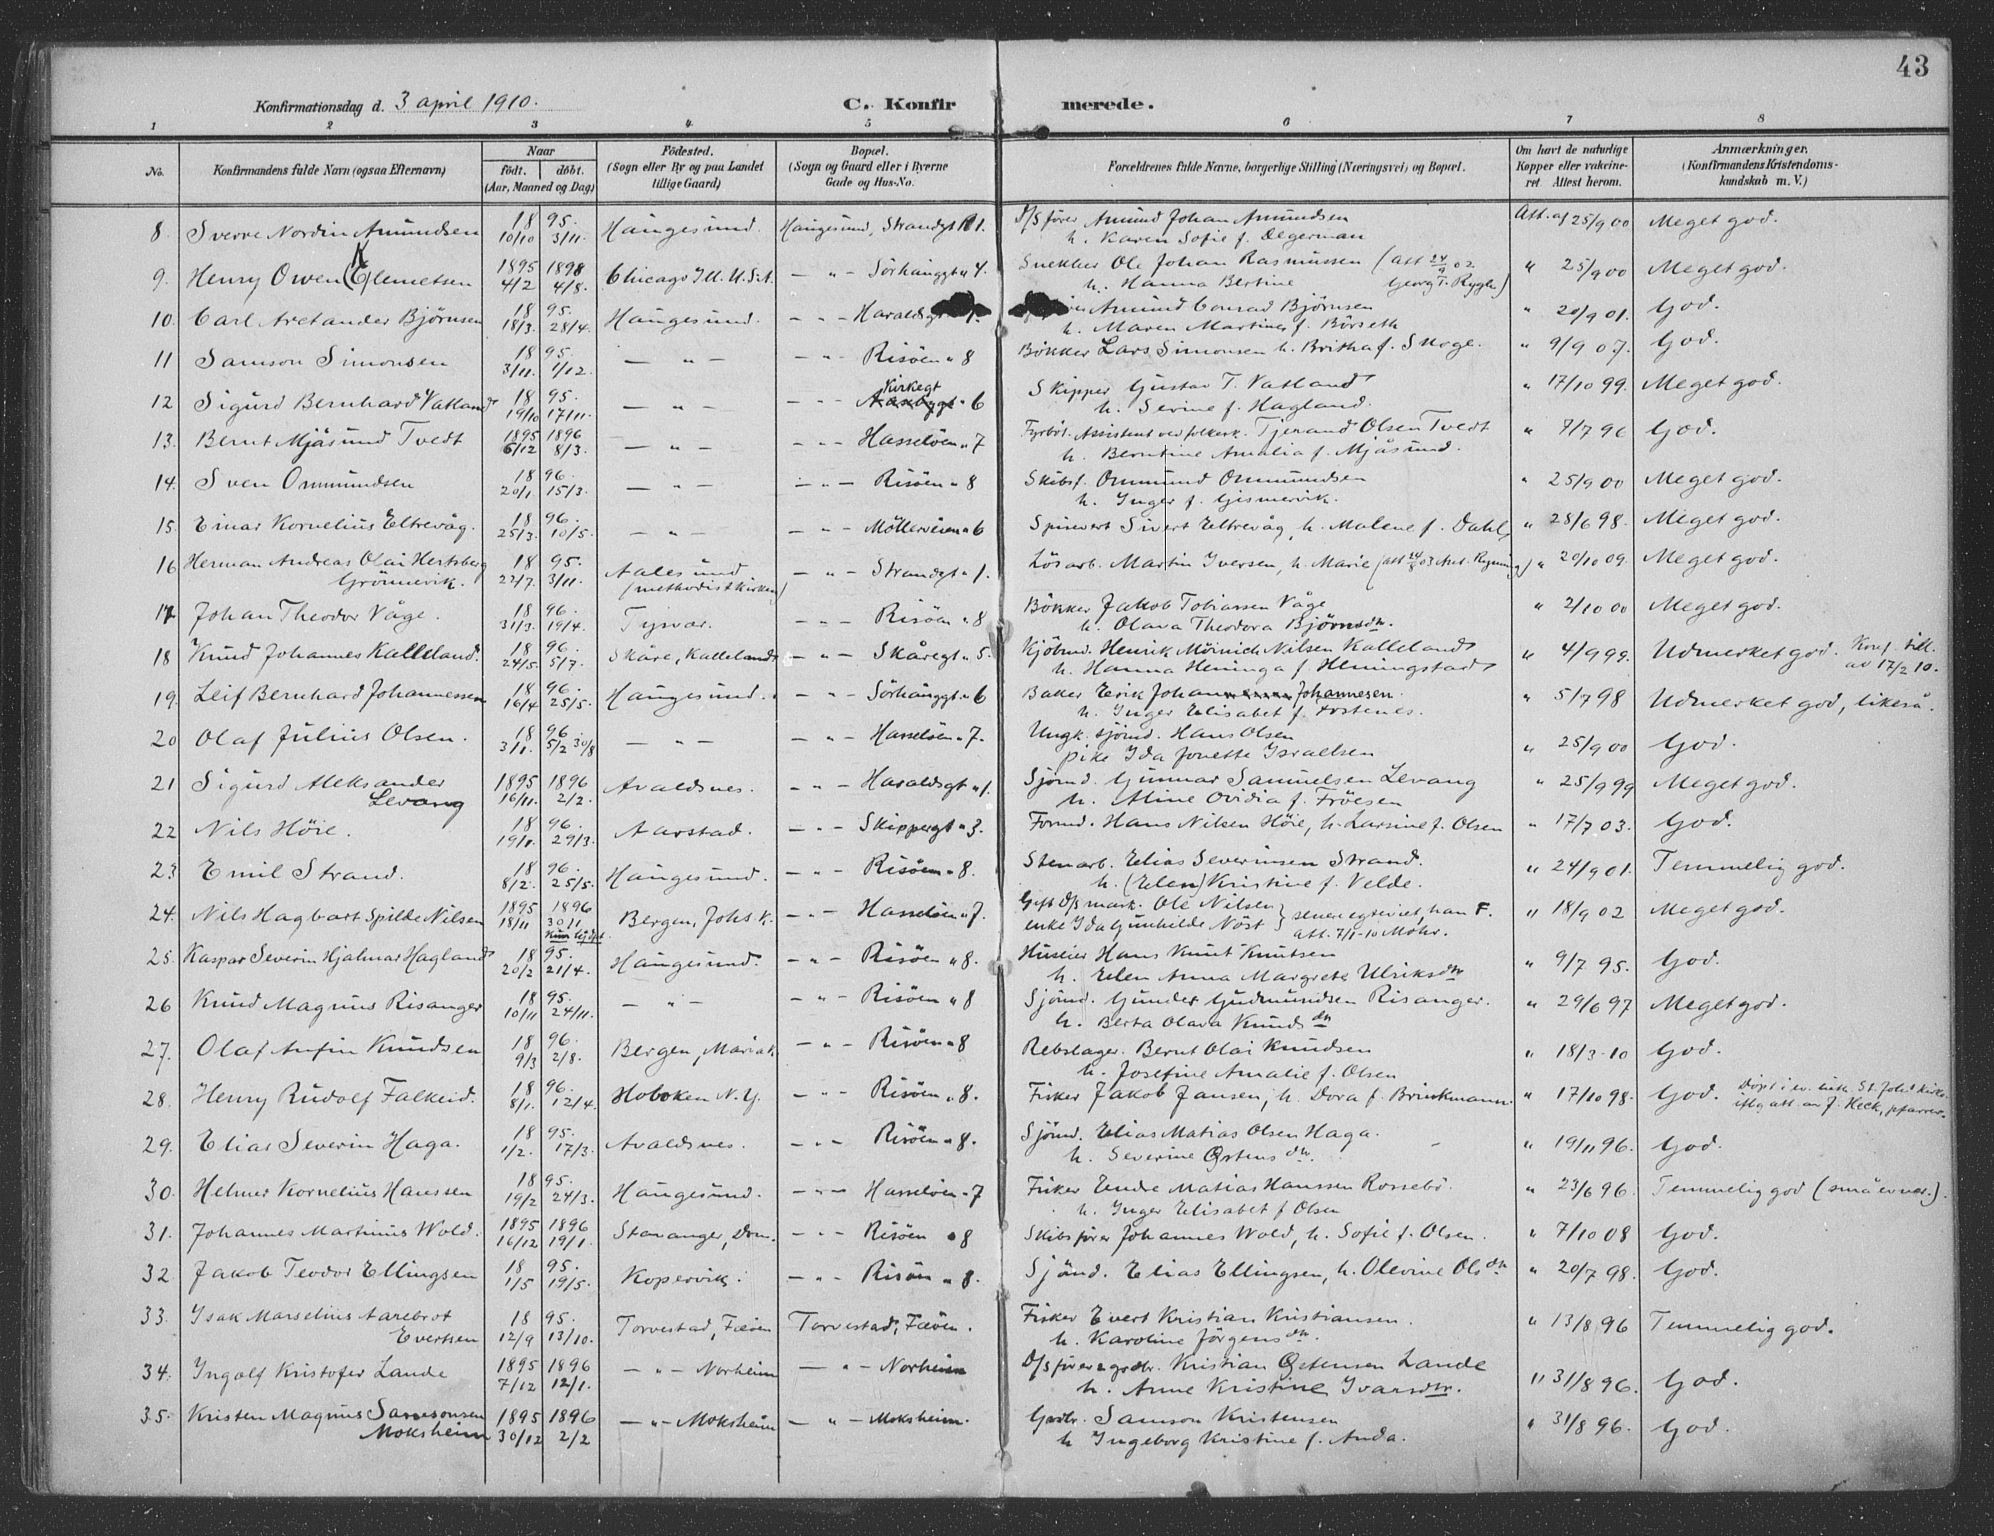 43
Konfirmationsdag d. 3 april 1910.
C. Konfirmerede.
1 2 3 4 5 6 7 8
No. Konfirmandens fulde Navn (ogsaa Efternavn) Naar født. døbt. (Aar, Maaned og Dag) Födested. (Sogn eller By og paa Landet tillige Gaard) Bopæl. (Sogn og Gaard eller i Byerne Gade og Hus-No. Forældrenes fulde Navne, borgerlige Stilling (Næringsvei) og Bopæl. Om havt de naturlige Kopper eller vakcineret. Attest herom. Anmærkninger. (Konfirmandens Kristendomskundskab m. V.)
8. Sverre Nordin Amundsen 1895. 10/10 3/11. Haugesund. Haugesund, Strandgt 1. D/S fører Amund Johan Amundsen Att. af 25/9 00 Meget god.
h. Karen Sofie f. Degerman
9. Henry Owen (K)lemetsen 1895 4/2 1898 4/8. Chicago Ill. U.S.A. — " — Sørhauggt " 4. Snekker Ole Johan Rasmussen (att 24/9 02 " 25/9 00 Meget god.
h. Hanna Bertine Georg T. Rygh)
10. Carl Aretander Bjørnsen 1895. 18/3. 28/4. Haugesund. — " — Haraldsgt 1. Amund Conrad Bjørnsen " 20/9 01. God.
h. Maren Martine f. Børseth
11 Samson Simonsen 1895. 3/11. 1/12. — " — — " — Risöen " 8 Bökker Lars Simonsen h. Britha f. Skoge. " 9/9 07. God.
12 Sigurd Bernhard Vatland 1895. 19/10 17/11. — " — — " — Kirkegt " 6 Skipper Gustav T. Vatland " 17/10 99. Meget god.
h. Serine f. Hagland.
13. Bernt Mjåsund Tvedt 1895 6/12 1896 8/3. — " — — " — Hasselöen " 7 Fyrböt. Assistent ved folkerk. Tjerand Olsen Tvedt " 7/7 96 God.
h. Berntine Amalia f. Mjåsund.
14. Sven Ommundsen 1896. 20/1. 15/3. — " — — " — Risöen " 8 Skibsf. Ommund Ommundsen " 25/9 00 Meget god.
h. Inger f. Gismervik.
15. Einar Kornelius Eltrevåg. 1896. 25/3. 10/5. — " — — " — Möllerveien " 6 Sivert Eltrevåg, h. Malene f. Dahl " 28/6 98. Meget god.
16 Herman Andreas Olai Hertsberg Grönnevik. 1895. 22/7. 3/11. Aalesund (methodistkirken) — " — Strandgt " 1. Lösarb. Martin Iversen, h. Marie " 20/10 09. Meget god.
17 Johan Theodor Våge. 1896. 31/3. 19/4. Tysvær. — " — Risöen " 8 Bökker Jakob Tobiassen Våge " 2/10 00 Meget god.
h. Olava Theodora Björnsdtr.
18 Knud Johannes Kalleland. 1896. 24/5. 5/7. Skåre, Kalleland — " — Skåregt " 5. Kjöbmd. Henrik Mönnich Nilsen Kalleland " 4/9 99. Udmerket god. Konf. till. av 17/2 10.
h. Hanna Heninga f. Heningstad
19. Leif Bernhard Johannessen 1896. 16/4 25/5. Haugesund. — " — Sörhauggt " 6 Baker Erik Johan Johannesen. " 5/7 98 Udmerket god, likeså.
h. Inger Elisabet f. Fosenes.
20 Olaf Julius Olsen. 1896. 3/1. 5/2 30/8 — " — — " — Hasselöen " 7. Ungk. sjömd. Hans Olsen " 25/9 00 God.
pike Ida Jonette Israelsen
21 Sigurd Aleksander Levang 1895 16/11. 1896 2/2. Avaldsnes. — " — Haraldsgt " 1. Sjömd. Gunnar Samuelsen Levang " 25/9 99 Meget god.
h. Aline Ovidia f. Fröesen
22 Nils Höie. 1896. 19/1. 29/3. Aarstad. — " — Skippergt " 3. Formd. Hans Nilsen Höie, h. Larsine f. Olsen " 17/7 03. God.
23 Emil Strand. 1896. 8/2. 25/5. Haugesund. — " — Risöen " 8. Stenarb. Elias Severinsen Strand. " 24/9 01. Temmelig god.
h. (Elen) Kristine f. Velde.
24. Nils Hagbart Spilde Nilsen 1895 18/11 1896 30/1. Bergen, Johs k. — " — Hasselöen " 7. Gift D/S mask. Ole Nilsen " 18/9 02 Meget god.
enke Ida Gunhilde Nöst } senere egteviet, han F. att. 7/1-10 Mohr.
25. Kaspar Severin Hjalmar Hagland 1895. 20/2 21/4. Haugesund. — " — Risöen " 8. Huseier Hans Knut Knutsen " 9/7 95. God.
h. Elen Anna Margrete Ulriksdtr
26 Knud Magnus Risanger 1895. 10/11 24/11. — " — — " — Risöen " 8 Sjömd. Gunder Gudmundsen Risanger. " 29/6 97 Meget god.
h. Berta Olava Knudsdtr
27. Olaf Anfin Knudsen 1896. 9/3 2/8. Bergen, Mariak. — " — Risöen " 8 Rebslager. Bernt Olai Knudsen " 18/3-10 God.
h. Josefine Amalie f. Olsen
28. Henry Rudolf Falkeid. 1896. 8/1. 12/4. Hoboken N.Y. — " — Risöen " 8. Fisker Jakob Jansen, h. Dora f. Brinkmann. " 17/10 98. God. Döpt i ev. luth. St. Johs kirke iflg att. av J. Heck, pfarrer.
29. Elias Severin Haga. 1895. 1/2. 17/3. Avaldsnes. — " — Risöen " 8. Sjömd. Elias Matias Olsen Haga. " 19/11 96. God.
h. Severine Østensdtr.
30. Helmer Kornelius Hanssen 1895. 19/2 24/3. Haugesund. — " — Hasselöen " 7 Fisker Endre Matias Hanssen Rossebö. " 23/6 96. Temmelig god (små evner.).
h. Inger Elisabet f Olsen
31. Johannes Martinus Wold. 1895 16/12 1896 19/1. Stavanger, Dom. — " — Risöen " 8 Skibsförer Johannes Wold, h. Sofie f. Olsen. " 7/10 08 God.
32. Jakob Teodor Ellingsen 1895. 1/5 19/5. Kopervik. — " — Risöen " 8. Sjömd. Elias Ellingsen, h. Olevine Olsdtr " 20/7 98. God.
33. Isak Marselius Aarebrot Evertsen 1895. 12/9 13/10. Torvestad, Feöen Torvestad, Feöen. Fisker Evert Kristian Kristiansen. " 13/8 96 Temmelig god.
h. Karoline Jörgensdtr.
34. Ingolf Kristofer Lande 1895 7/12 1896 12/1. — " — Norheim — " — Norheim D/S förer & grdbr. Kristian Østensen Lande " 31/8 96. God.
h. Anne Kristine Ivarsdtr.
35. Kristen Magnus Samsonsen Moksheim 1895 30/12 1896 2/2 — " — Moksheim — " — Moksheim. Grdbr. Samson Kristensen " 31/8 96. God.
h Ingeborg Kristine f. Anda.